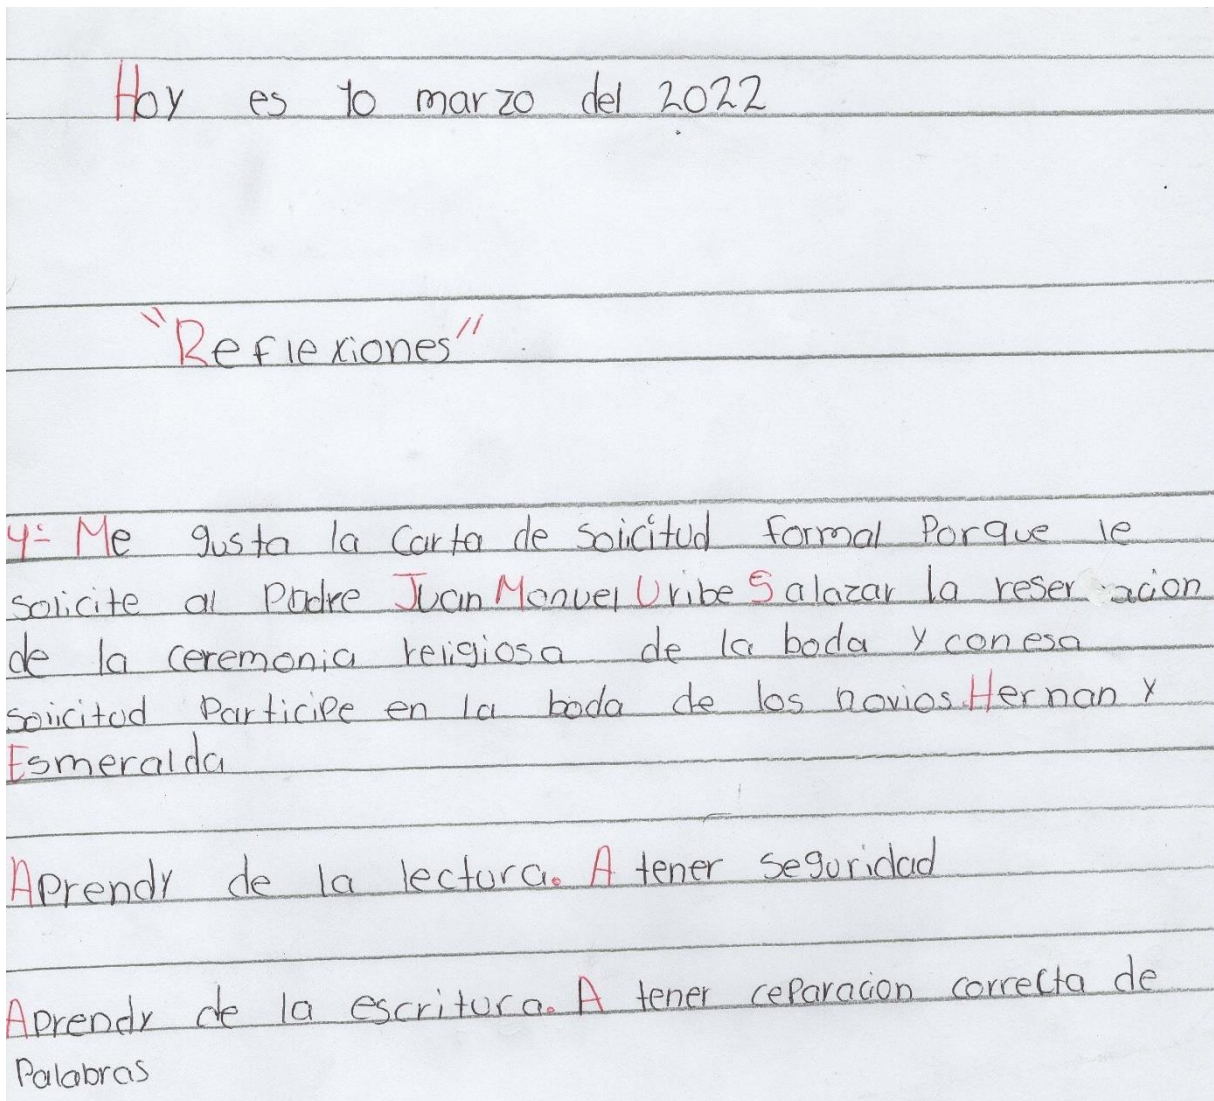 Hoy es 10 marzo del 2022
"Reflexiones"
4.- Me gusta la Carta de solicitud formal Porque le
solicite al Padre Juan Manuel Uribe Salazar la reser acion
de la ceremonia religiosa de la boda y con esa
solicitud Participe en la boda de los novios Hernan y
Esmeralda
Aprendy de la lectura. A tener seguridad
Aprendy de la escritura. A tener ceparacion correcta de
Palabras